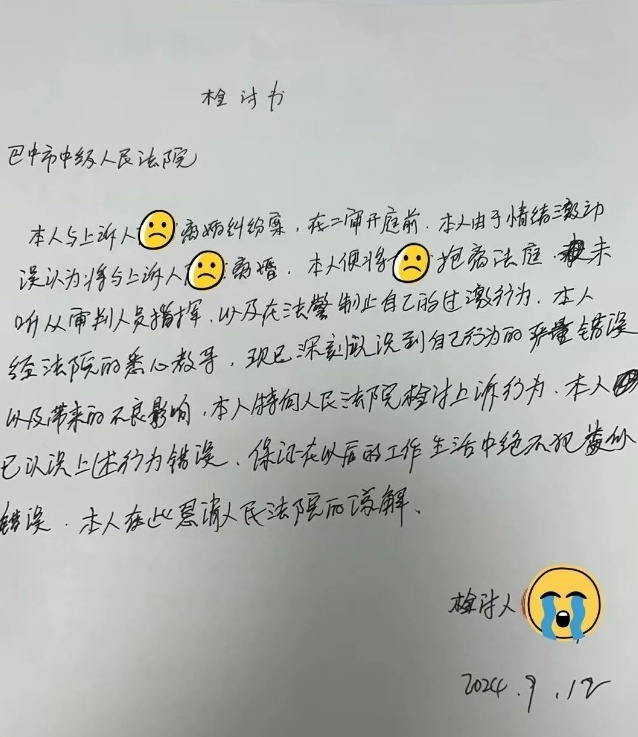 检讨书
巴中市中级人民法院
本人与上诉人 离婚纠纷案，在二审开庭前，本人由于情绪激动
误认为将与上诉人 离婚，本人便将 抱离法庭 未
听从审判人员指挥，以及在法警制止自己的过激行为，本人
经法院的悉心教导，现已深刻认识到自己行为的严重错误
以及带来的不良影响，本人特向人民法院检讨上诉行为，本人
已认识上述行为错误，保证在以后的工作生活中绝不犯类似
错误，本人在此恳请人民法院的谅解、
检讨人
2024.9.12